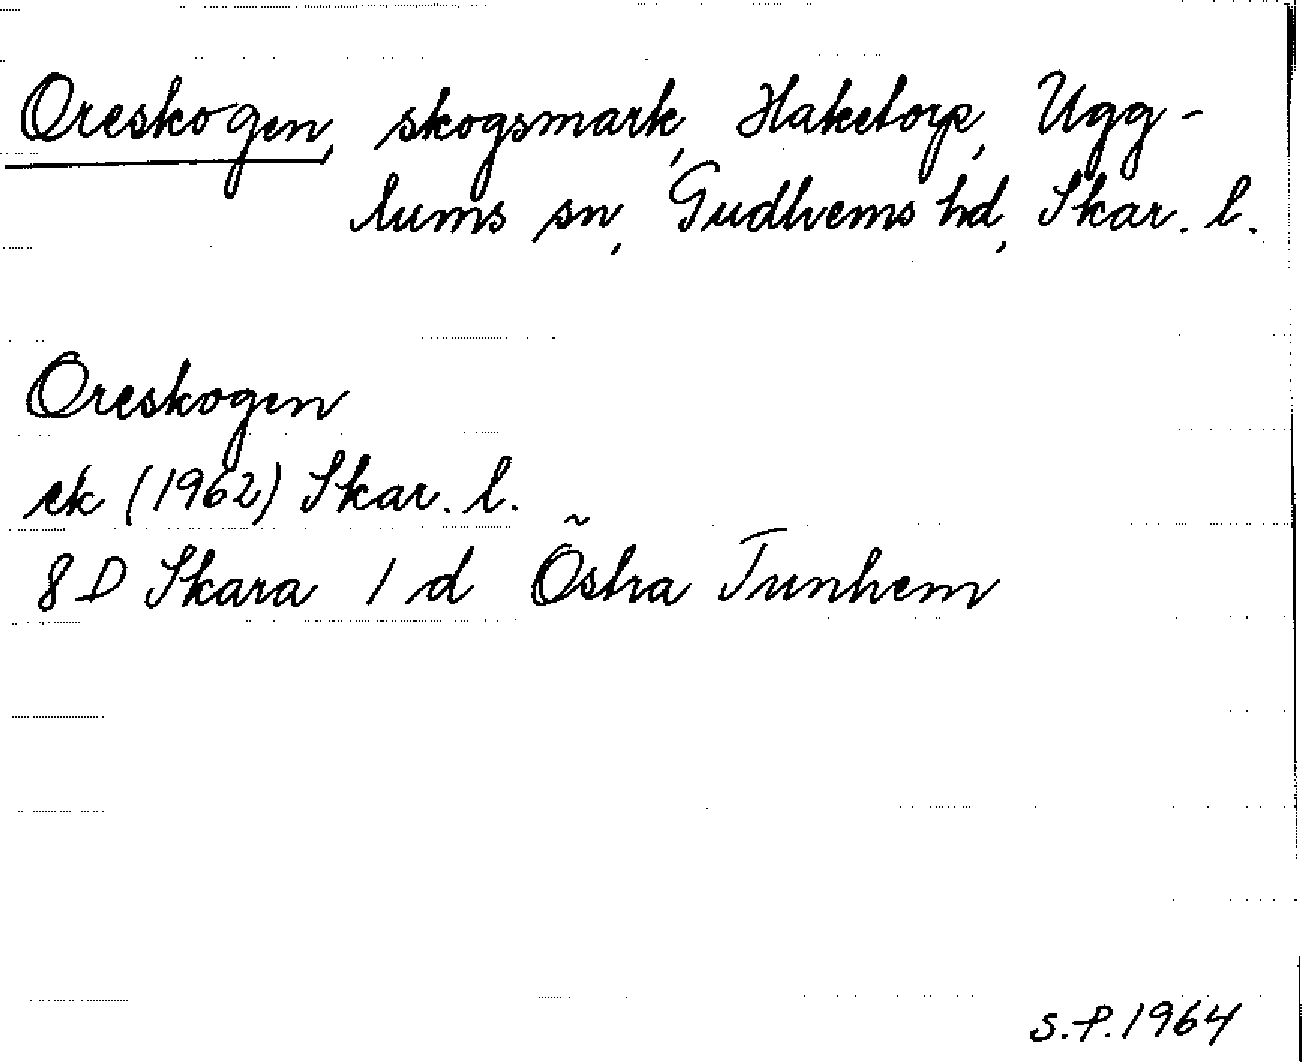 Oreskogen, skogsmark, Haketorp, Ugg-
lums sn, Gudhems hd, Skar. l.
Oreskogen
ek (1962) Skar. l.
8 D Skara 1 d Östra Tunhem
S.P. 1964